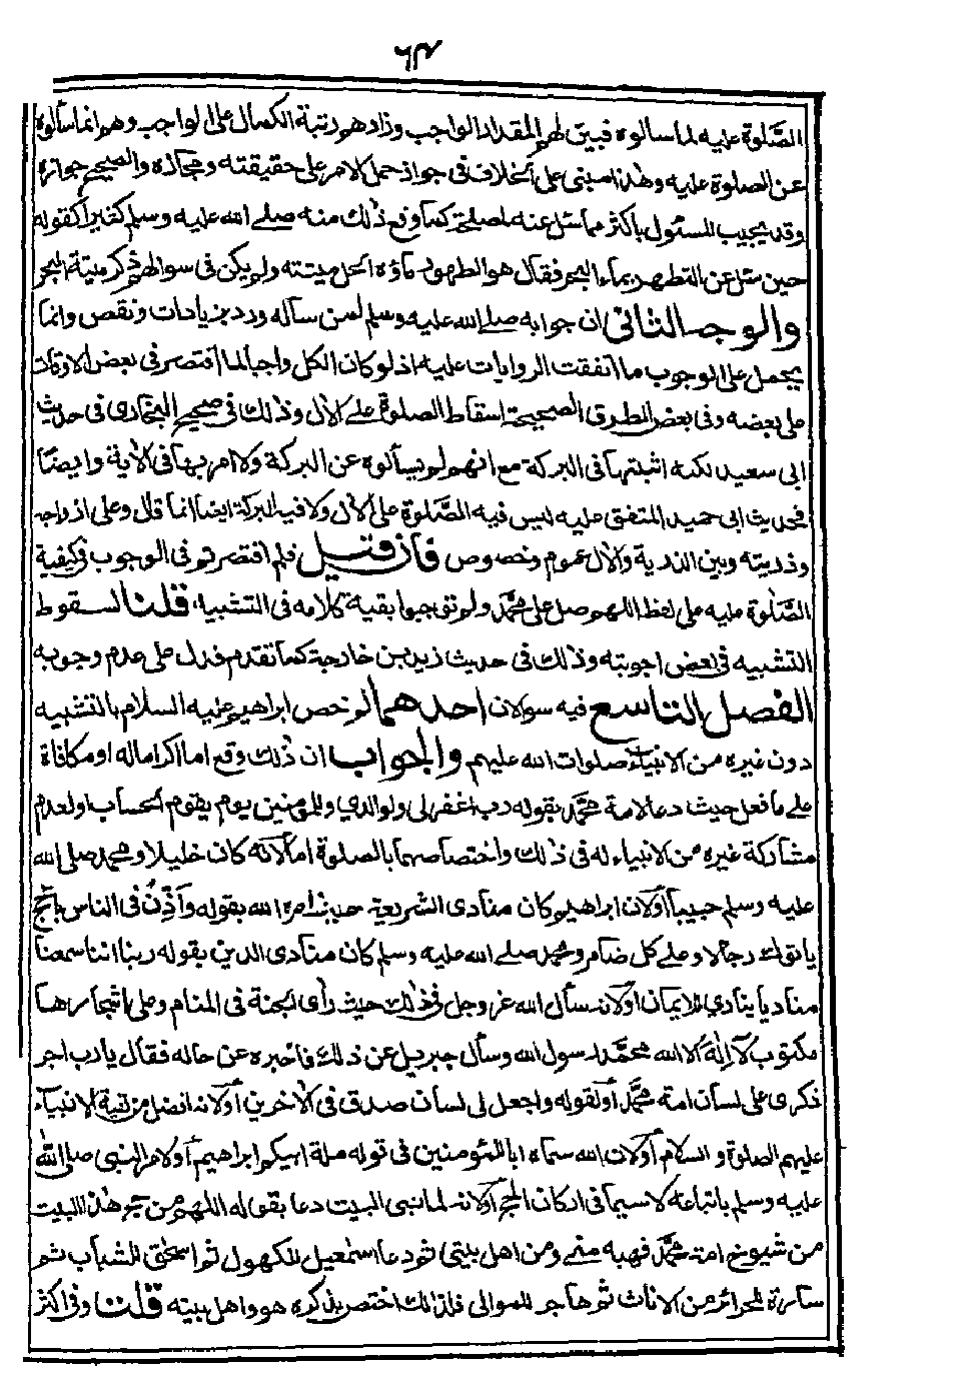 ٦٤
الصّلوة عليه لما سالوه فبين لهم المقدار الواجب وزادهم رتبة الكمال على الواجب وهم انما سألوه
عن الصلوة عليه وهذا مبنى على الخلاف فى جواز حمل الامر على حقيقته ومجازه والصحيح جوازه
وقد يجيب المسئول باكثر مما سئل عنه لمصلحة كما وقع ذلك منه صلے الله عليه وسلم كثيرا كقوله
حين سئل عن التطهر بماء البحر فقال هو الطهور ماؤه الحل ميتته ولم يكن فى سوالهم ذكر ميتة البحر
والوجه الثانى ان جوابه صلے الله عليه وسلم لمن ساله ورد بزيادات ونقص وانما
يحمل على الوجوب ما اتفقت الروايات عليه اذ لو كان الكل واجبا لما اقتصر فى بعض الاوقات
على بعضه وفى بعض الطرق الصحيحة اسقاط الصلوة على الآل وذلك فى صحيح البخارى فى حديث
ابى سعيد لكنه اثبتها فى البركة مع انهم لم يسألوه عن البركة ولا امر بها فى الآية وايضا
فحديث ابى حميد المتفق عليه ليس فيه الصّلوة على الآل ولا فيه البركة ايضا انما قال وعلى ازواجه
وذريته وبين الذرية والآل عموم وخصوص فان قيل فلم اقتصرتم فى الوجوب فى كيفية
الصّلوة عليه على لفظ اللهم صل على محمّد ولم توجبوا بقية كلامه فى التشبيه قلنا لسقوط
التشبيه فى بعض اجوبته وذلك فى حديث زيد بن خارجة كما تقدم فدل على عدم وجوبه
الفصل التاسع فيه سوالان احدهما لم خص ابراهيم عليه السلام بالتشبيه
دون غيره من الانبياء صلوات الله عليهم والجواب ان ذلك وقع اما اكراما له او مكافاة
على ما فعل حيث دعا لامة محمّد بقوله رب اغفر لى ولوالدي وللمؤمنين يوم يقوم الحساب او لعدم
مشاركة غيره من الانبياء له فى ذلك واختصاصهما بالصلوة اما لانه كان خليلا ومحمد صلى الله
عليه وسلم حبيبا او لان ابراهيم كان منادى الشريعة حيث امره الله بقوله وَاَذِّنْ فى الناس بالحج
ياتوك رجالا وعلى كل ضامر ومحمد صلے الله عليه وسلم كان منادى الدين بقوله ربنا اننا سمعنا
مناديا ينادي للايمان او لانه سأل الله عز وجل فى ذلك حيث رأى الجنة فى المنام وعلى اشجارها
مكتوب لَا اِلٰهَ اِلَّا الله محمّد رسول الله وسأل جبريل عن ذلك فاخبره عن حاله فقال يا رب اجر
ذكرى على لسان امة محمّد او لقوله واجعل لى لسان صدق فى الآخرين او لانه افضل من بقية الانبياء
عليهم الصلوة والسلام او لان الله سماه ابا للمؤمنين فى قوله ملة ابيكم ابراهيم او لامر النبى صلى الله
عليه وسلم باتباعه لا سيما فى اركان الحج او لانه لما بنى البيت دعا بقوله اللهم من حج هذا البيت
من شيوخ امة محمّد فهبه منى ومن اهل بيتى ثم دعا اسمعيل للكهول ثم اسحق للشباب ثم
سارة للحرائر من الاناث ثم هاجر للموالى فلذلك اختص بذكره هو واهل بيته قلت وفى اكثر